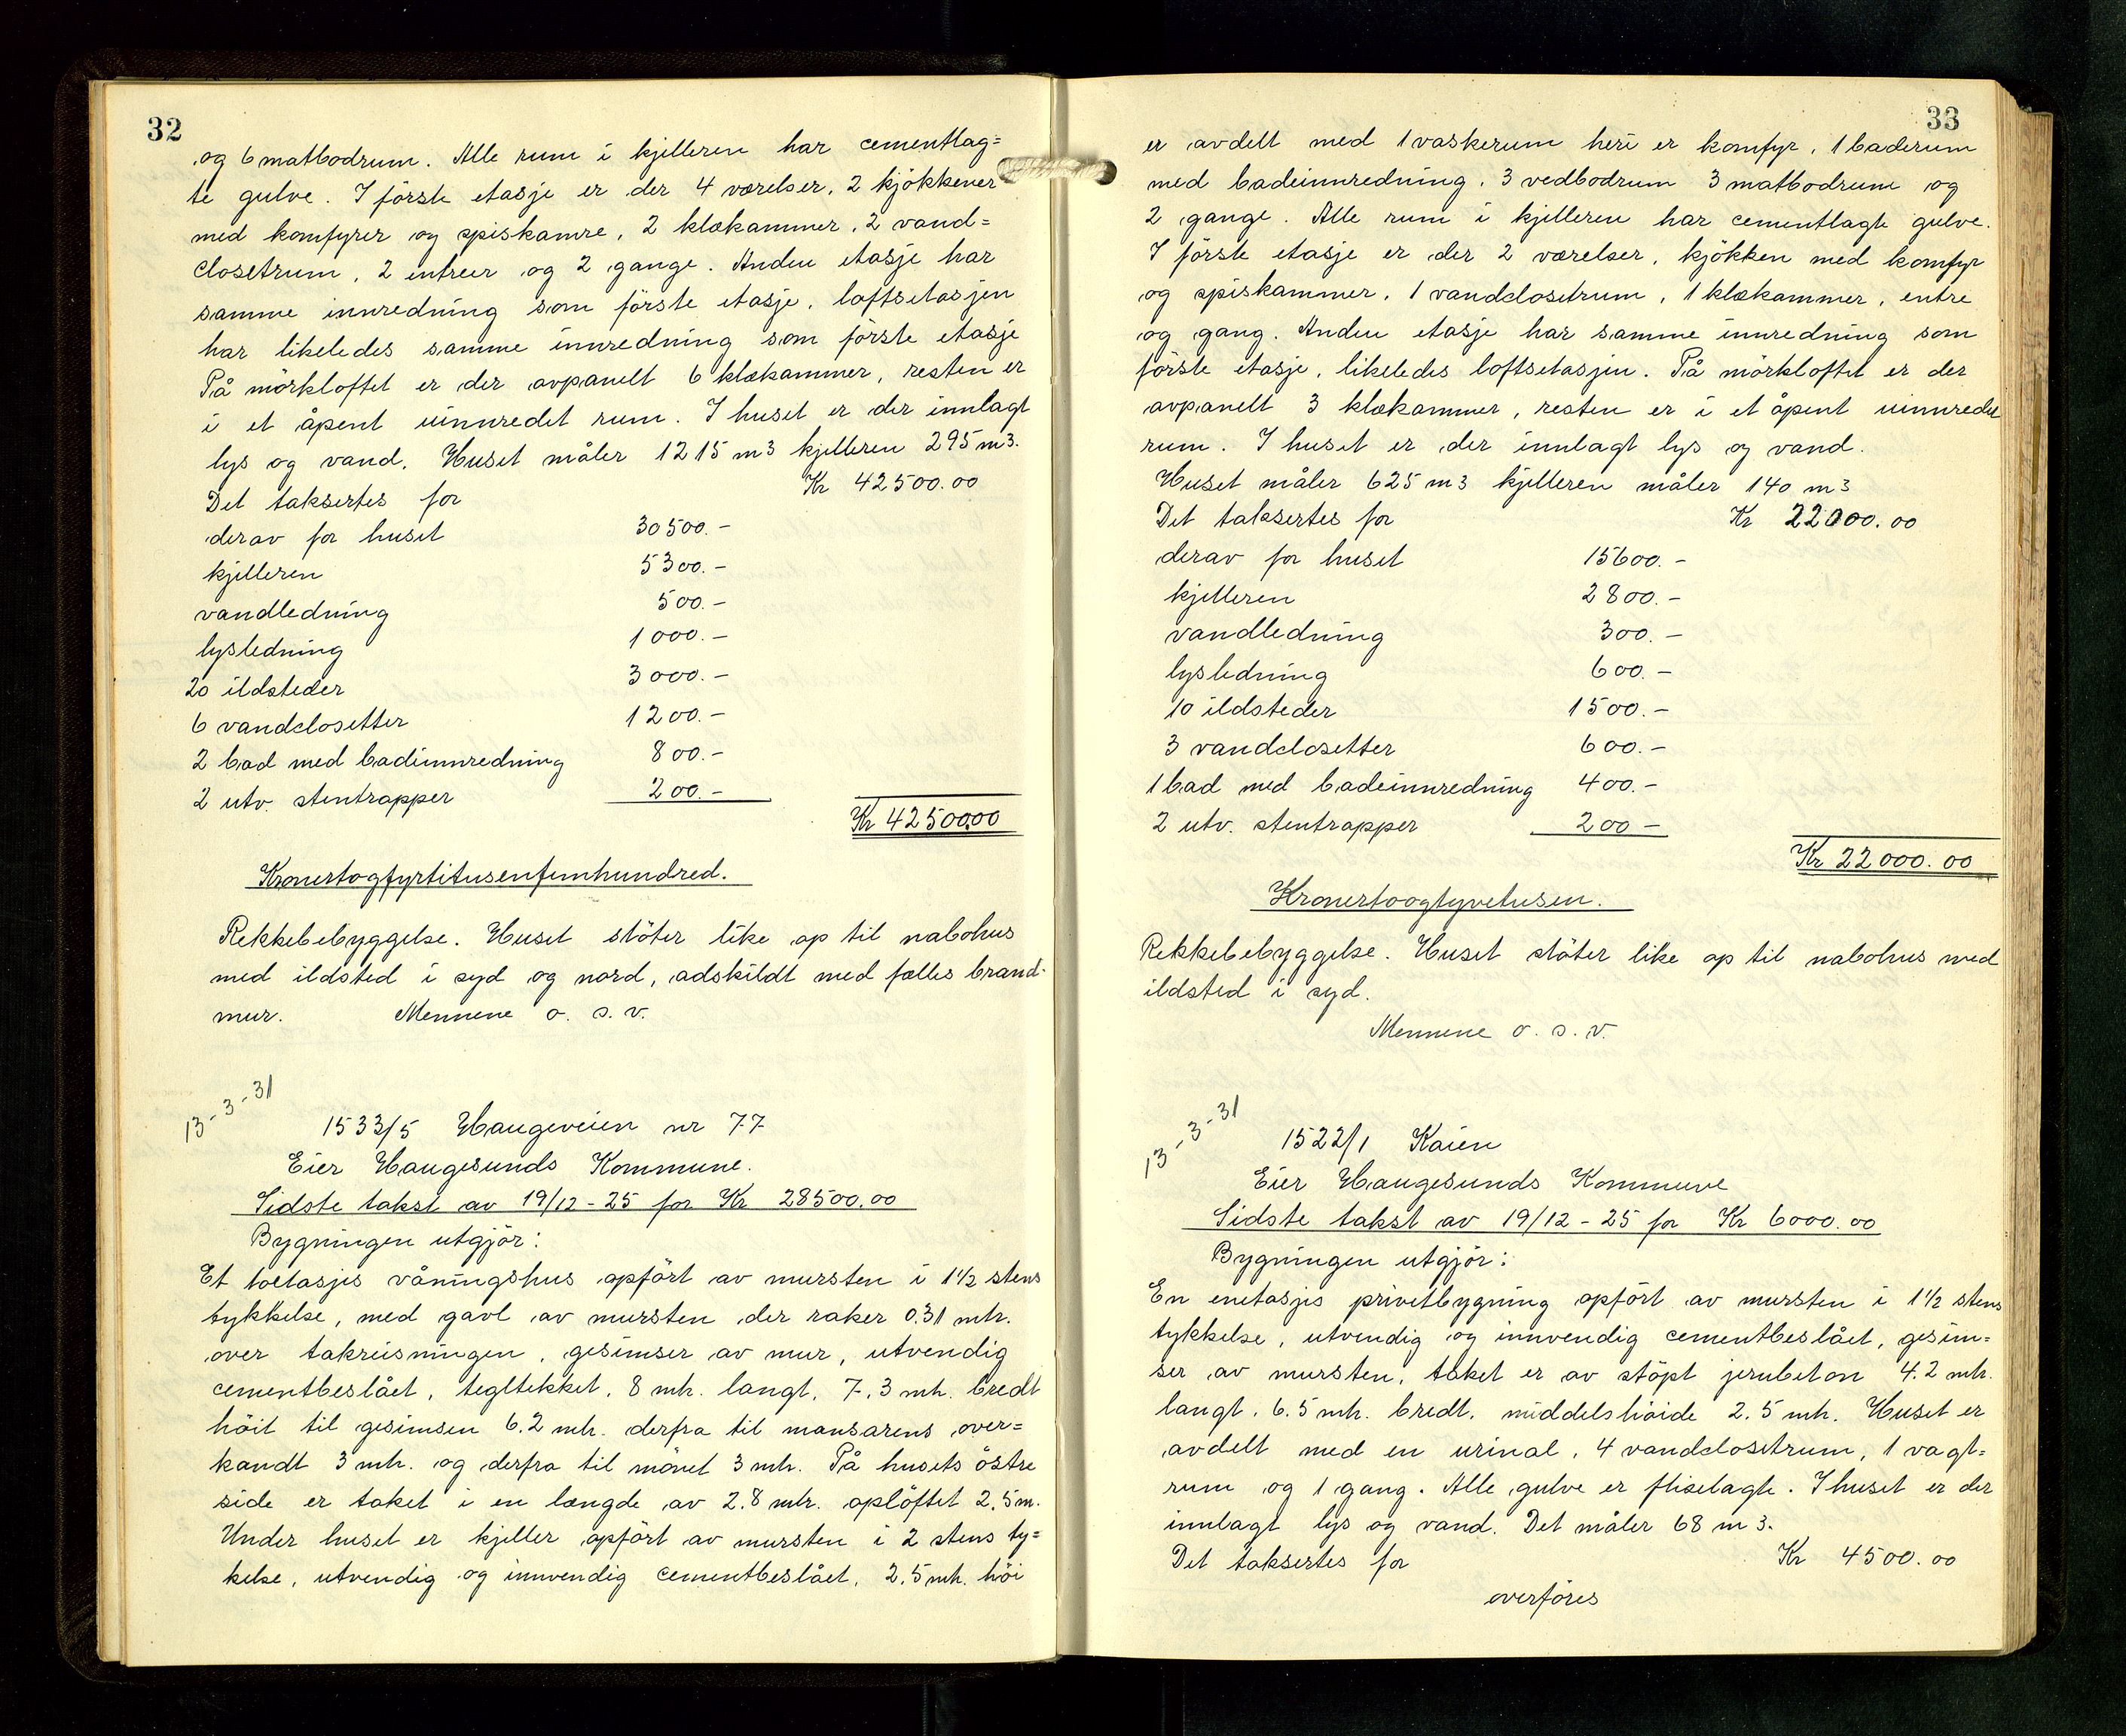 32
og 6 matbodrum. Alle rum i kjelleren har cementlag=
te gulve. I förste etasje er der 4 værelser, 2 kjökkener
med komfyrer og spiskamre, 2 klækammer, 2 vand=
closetrum, 2 entreer og 2 gange. Anden etasje har
samme innredning som förste etasje, loftsetasjen
har likeledes samme innredning som förste etasje
På mörkloftet er der avpanelt 6 klækammer, resten er
i et åpent uinnredet rum. I huset er der innlagt
lys og vand. Huset måler 1215 m3 kjelleren 295 m3.
Det taksertes for Kr 42500.00
derav for huset 30500.-
kjelleren 5300.-
vandledning 500.-
lysledning 1000.-
20 ildsteder 3000.-
6 vandclosetter 1200.-
2 bad med badeinnredning 800.-
2 utv. stentrapper 200.-
Kr 42500.00
Kronertogfyrtitusenfemhundred.
Rekkebebyggelse. Huset stöter like op til nabohus
med ildsted i syd og nord, adskildt med fælles brand-
mur. Mennene o. s. v.
13-3-31
1533/5 Haugeveien nr 77
Eier Haugesunds Kommune.
Sidste takst av 19/12-25 for Kr 28500.00
Bygningen utgjör:
Et toetasjes våningshus opfört av mursten i 1½ stens
tykkelse, med gavl av mursten der raker 0.31 mtr.
over takreisningen, gesimser av mur, utvendig
cementbeslået, tegltekket, 8 mtr. langt, 7,3 mtr. bredt
höit til gesimsen 6.2 mtr. derfra til mansarens over=
kandt 3 mtr. og derfra til mönet 3 mtr. På husets östre
side er taket i en længde av 2.8 mtr. oplöftet 2,5 m.
Under huset er kjeller opfört av mursten i 2 stens ty=
kelse, utvendig og innvendig cementbeslået, 2,5 mtr. höi
33
er avdelt med 1 vaskerum heri er komfyr, 1 baderum
med badeinnredning, 3 vedbodrum 3 matbodrum og
2 gange. Alle rum i kjelleren har cementlagte gulve.
I förste etasje er der 2 værelser, kjökken med komfyr
og spiskammer, 1 vandclosetrum, 1 klækammer, entre
og gang. Anden etasje har samme innredning som
förste etasje, likeledes loftsetasjen. På mörkloftet er der
avpanelt 3 klækammer, resten er i et åpent uinnredet
rum. I huset er der innlagt lys og vand.
Huset måler 625 m3 kjelleren måler 140 m3
Det taksertes for Kr 22000.00
derav for huset 15600.-
kjelleren 2800.-
vandledning 300.-
lysledning 600.-
10 ildsteder 1500.-
3 vandclosetter 600.-
1 bad med badeinnredning 400.-
2 utv. stentrapper 200-
Kr 22000.00
Kronertoogtyvetusen.
Rekkebebyggelse. Huset stöter like op til nabohus med
ildsted i syd.
Mennene o. s. v.
13-3-31
1522/1 Kaien
Eier Haugesunds Kommune
Sidste takst av 19/12-25 for Kr 6000.00
Bygningen utgjör:
En enetasjes privetbygning opfört av mursten i 1½ stens
tykkelse, utvendig og innvendig cementbeslået, gesim=
ser av mursten, taket er av stöpt jernbeton 4.2 mtr.
langt, 6.5 mtr. bredt, middelshöide 2.5 mtr. Huset er
avdelt med en urinal, 4 vandclosetrum, 1 vagt=
rum og 1 gang. Alle gulve er fliselagte. I huset er der
innlagt lys og vand. Det måler 68 m3.
Det taksertes for Kr 4500.00
overföres